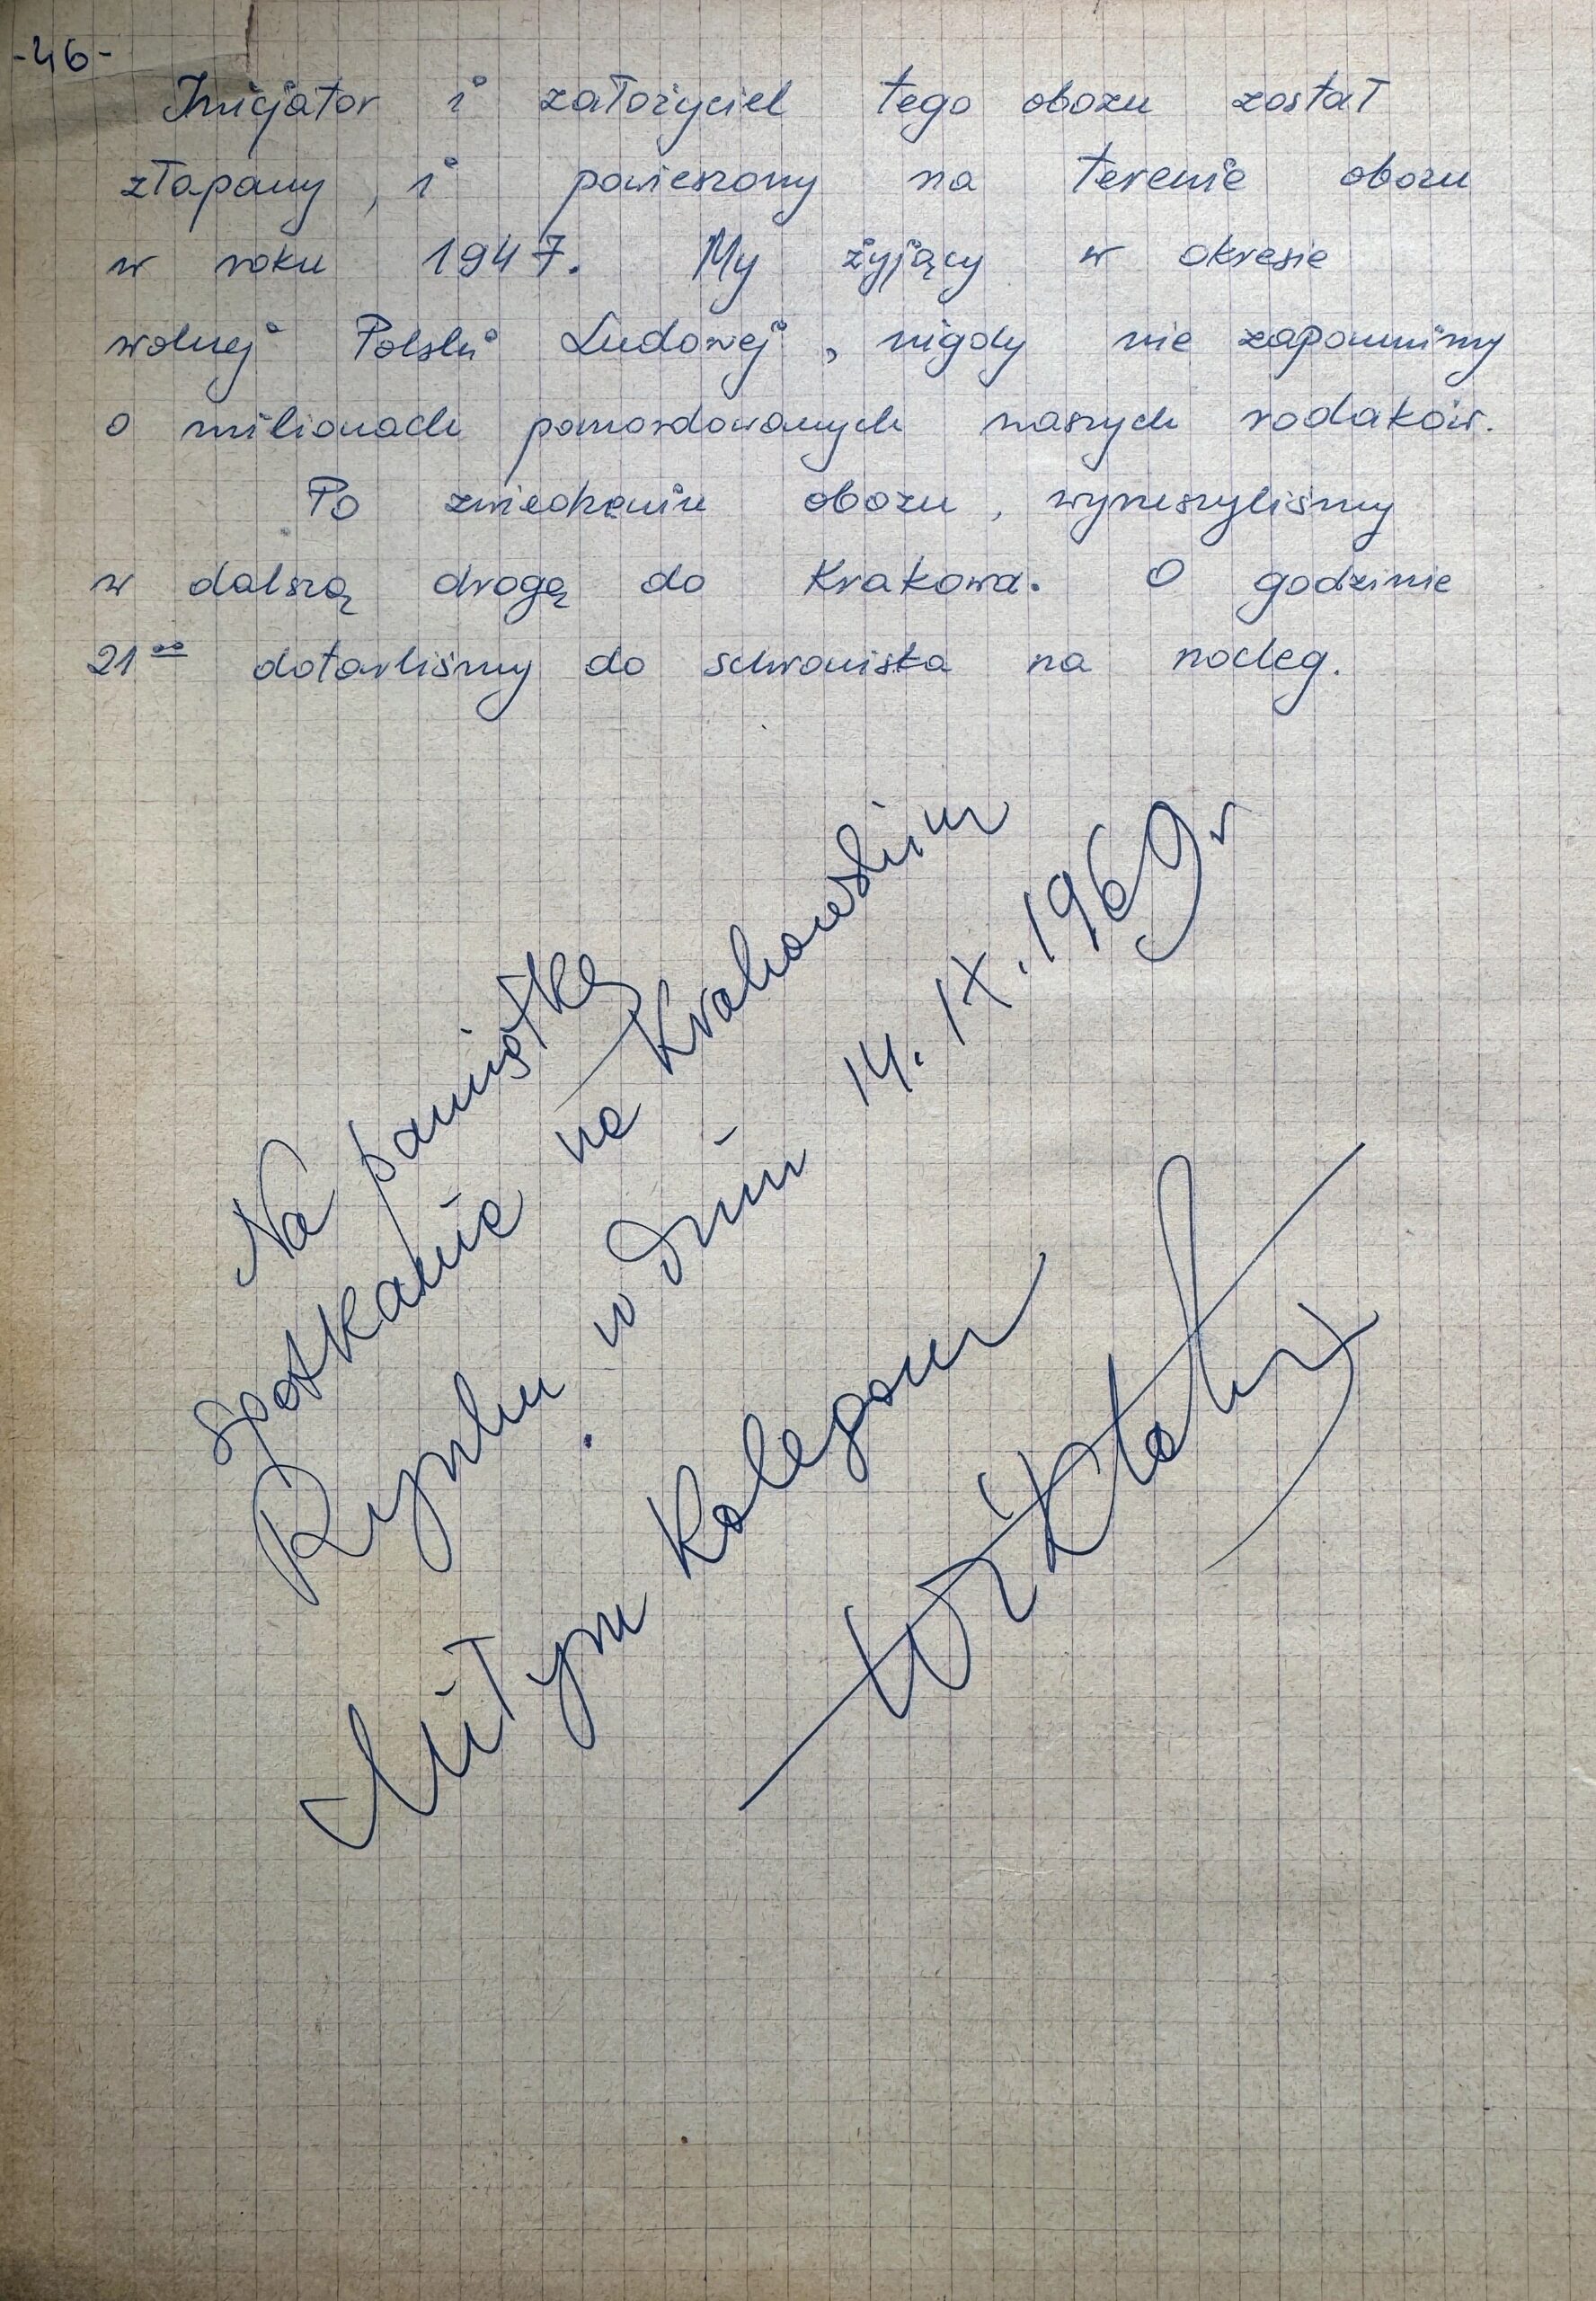 -46-
Inicjator i założyciel tego obozu został
złapany, i powieszony na terenie obozu
w roku 1947. My żyjący w okresie
wolnej Polski Ludowej, nigdy nie zapomnimy
o milionach pomordowanych naszych rodaków.
Po zwiedzeniu obozu, wyruszyliśmy
w dalszą drogę do Krakowa. O godzinie
21⁰⁰ dotarliśmy do schroniska na nocleg.
Na pamiątkę
spotkania na Krakowskim
Rynku w dniu 14.IX.1969r
Miłym Kolegom